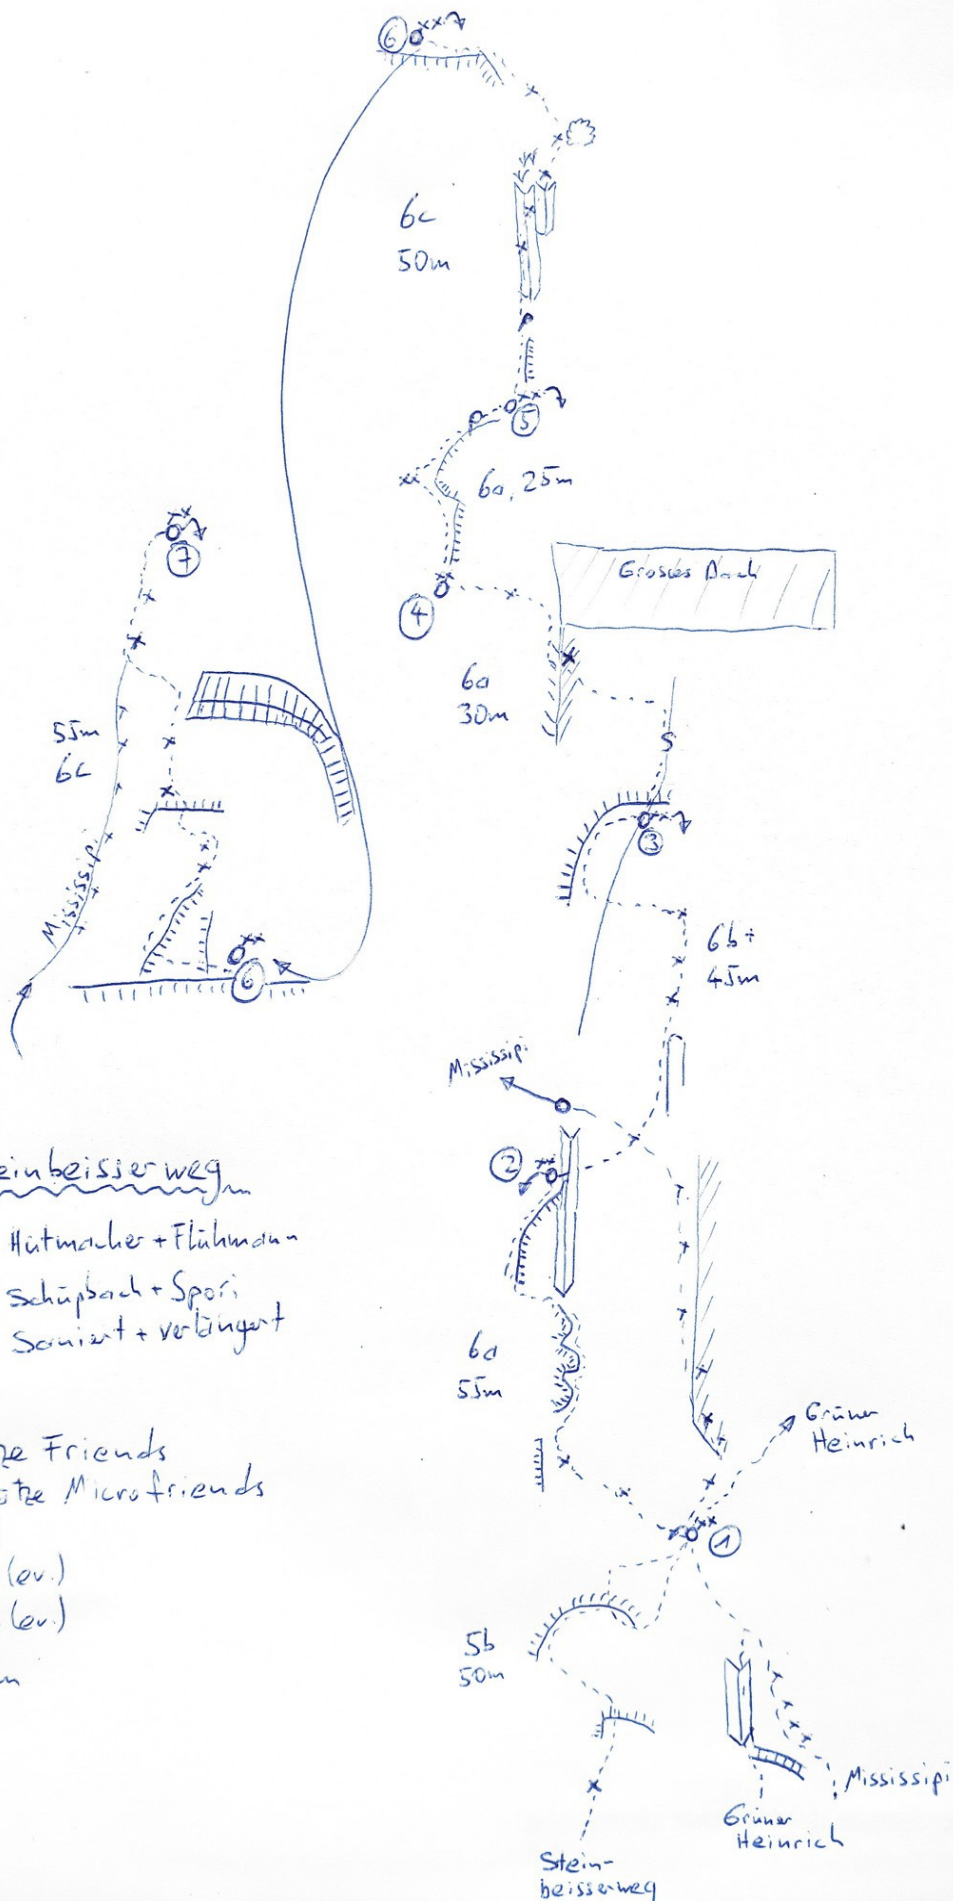 6
6c
50m
5
6a, 25m
7
Grosses Dach
4
6a
30m
55m
6c
S
3
Mississipi
6b+
45m
6
Mississipi
2
einbeisserweg
Hutmacher + Flühmann
Schüpbach + Spori
Saniert + verlängert
6a
55m
Grüner
Heinrich
ze Friends
ätze Microfriends
1
(ev.)
(ev.)
5b
50m
m
Mississipi
Grüner
Heinrich
Stein-
beisserweg